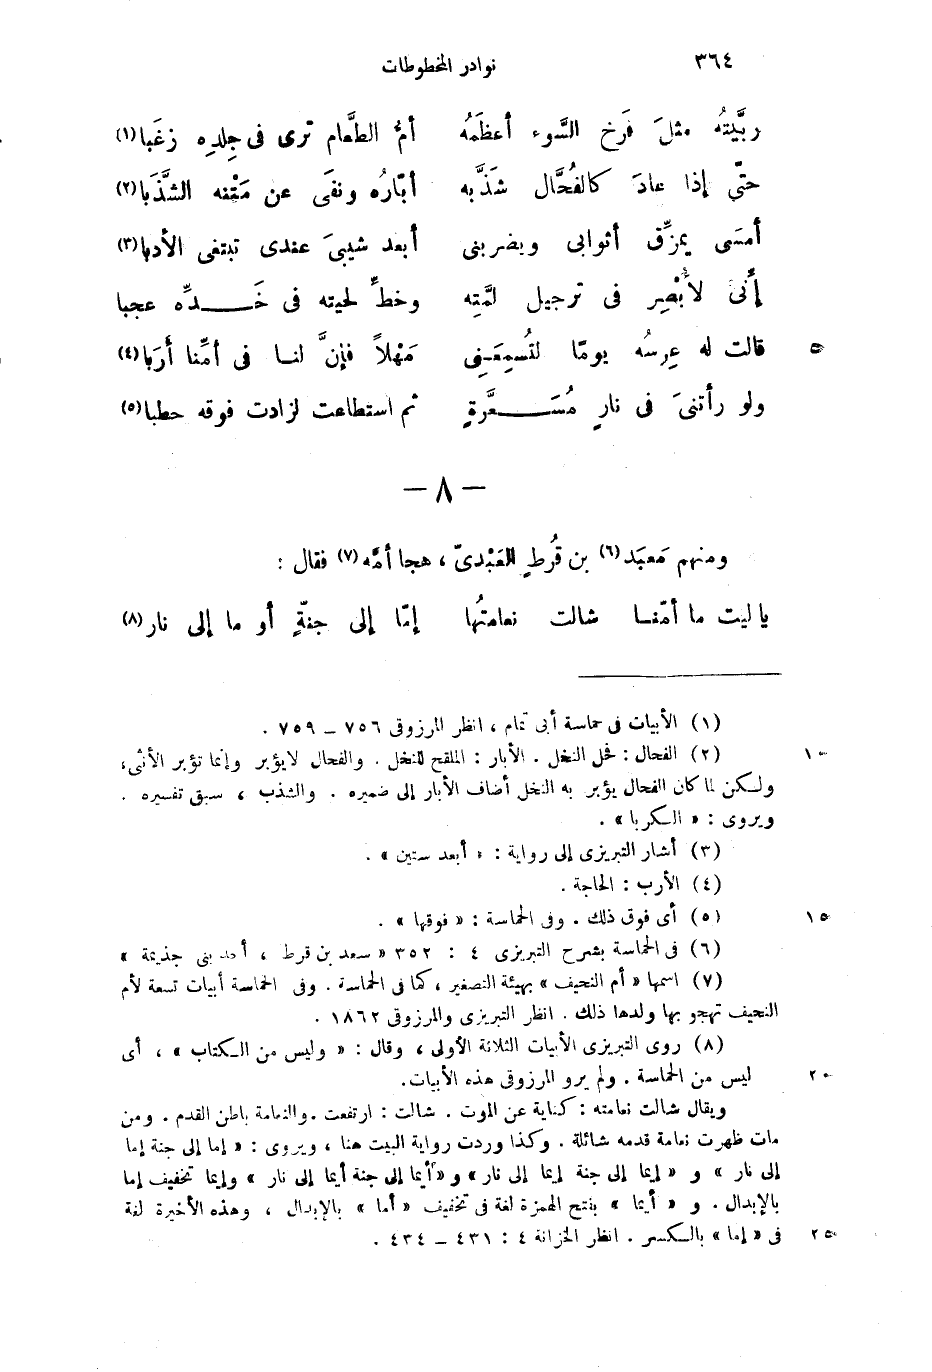 ٣٦٤ نوادر المخطوطات
ربَّيتُه مثلَ فَرخ السَّوء أعظَمُه أمُّ الطَّعام ترى فى جِلدِه زغَبا(١)
حتّى إذا عادَ كالفُحَّال شذَّبه أبّارُه ونفَى عن مَتْنه الشَّذَبا(٢)
أمسَى يمزِّق أثوابى ويضربنى أبعد شيبىَ عندى تبتغى الأدبا(٣)
إنِّى لأبْصِر فى ترجيل لمّته وخطِّ لحيته فى خَـــدِّه عجبا
٥ قالت له عِرسُه يومًا لتُسمِعَنِى مَهْلاً فإنَّ لنا فى أمِّنا أَربَا(٤)
ولو رأتنىَ فى نارٍ مُسَـــعَّرةٍ ثم استطاعت لزادت فوقه حطبا(٥)
— ٨ —
ومنهم مَعبَد(٦) بن قُرطٍ العَبْدىّ، هجا أمَّه(٧) فقال :
يا ليت ما أمّنا شالت نعامتُها إمّا إلى جنّةٍ أو ما إلى نار(٨)
(١) الأبيات فى حماسة أبى تمام ، انظر المرزوقى ٧٥٦ – ٧٥٩ .
١٠ (٢) الفحال : فحل النخل . الأبار : الملقح للنخل . والفحال لايؤبر وإنما تؤبر الأنثى،
ولكن لما كان الفحال يؤبر به النخل أضاف الأبار إلى ضميره . والشذب ، سبق تفسيره .
ويروى : « الكربا » .
(٣) أشار التبريزى إلى رواية : « أبعد ستين » .
(٤) الأرب : الحاجة .
١٥ (٥) أى فوق ذلك . وفى الحماسة : « فوقها » .
(٦) فى الحماسة بشرح التبريزى ٤ : ٣٥٢ « سعد بن قرط ، أحد بنى جذيمة »
(٧) اسمها « أم النحيف » بهيئة التصغير ، كما فى الحماسة . وفى الحماسة أبيات تسعة لأم
النحيف تهجو بها ولدها ذلك . انظر التبريزى والمرزوقى ١٨٦٢ .
(٨) روى التبريزى الأبيات الثلاثة الأولى ، وقال : « وليس من الكتاب » ، أى
٢٠ ليس من الحماسة . ولم يرو المرزوقى هذه الأبيات.
ويقال شالت نعامته : كناية عن الموت . شالت : ارتفعت .والنعامة باطن القدم . ومن
مات ظهرت نعامة قدمه شائلة . وكذا وردت رواية البيت هنا ، ويروى : « إما إلى جنة إما
إلى نار » و « إيما إلى جنة إيما إلى نار » و « أيما إلى جنة أيما إلى نار » وإيما تخفيف إما
بالإبدال . و « أيما » بفتح الهمزة لغة فى تخفيف « أما » بالإبدال ، وهذه الأخيرة لغة
٢٥ فى « إما » بالكسر . انظر الخزانة ٤ : ٤٣١ – ٤٣٤ .